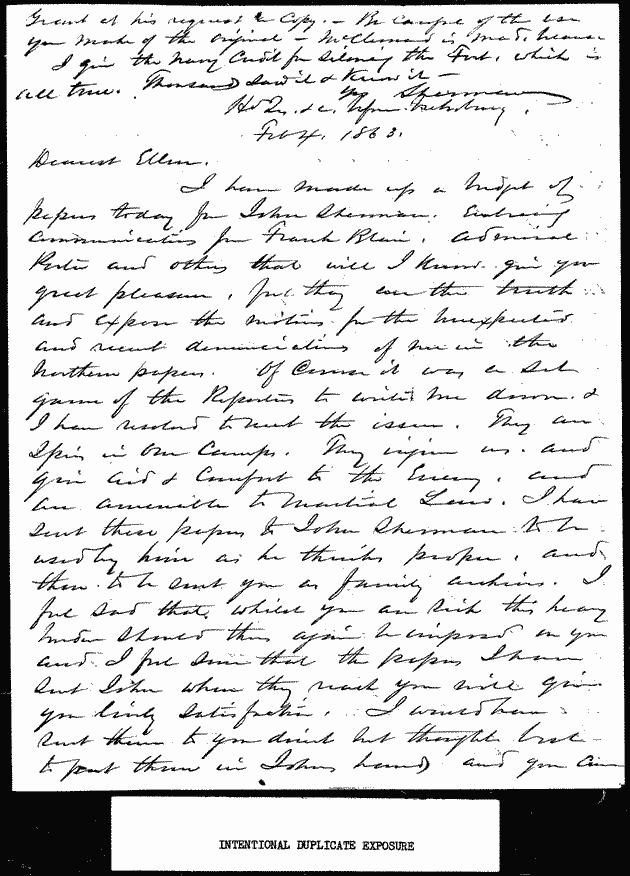 Grant at his request a Copy. - Be careful of the use
you make of the original - McClernand is mad, because
I give the Navy Credit for silencing the Fort, which is
all true. Thousands saw it & know it -
Yrs Sherman
Hd Qrs. &c. before Vicksburg,
Feb 4, 1863.
Dearest Ellen,
I have made up a budget of
papers today for John Sherman. Embracing
Communications from Frank Blair, Admiral
Porter and others that will I know give you
great pleasure, for they are the truth
and expose the motives for the unexpected
and recent denunciations of me in the
Northern papers. Of Course it was a set
game of the Reporters to write me down &
I have resolved to meet the issue. They are
Spies in our Camps. They injure us. and
give aid & Comfort to the Enemy, and
are amenable to Martial Law. I have
sent these papers to John Sherman to be
used by him as he thinks proper, and
then to be sent you as family archives. I
feel sad that, whilst you are sick this heavy
burden should thus again be imposed on you
and I feel sure that the papers I have
sent John when they reach you will give
you lively satisfaction. I would have
sent them to you direct but thought best
to put them in Johns hands and you can
INTENTIONAL DUPLICATE EXPOSURE